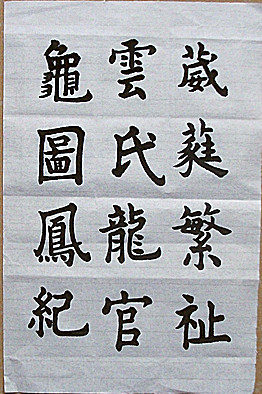 葳蕤繁祉
雲氏龍官
龜圖鳳紀